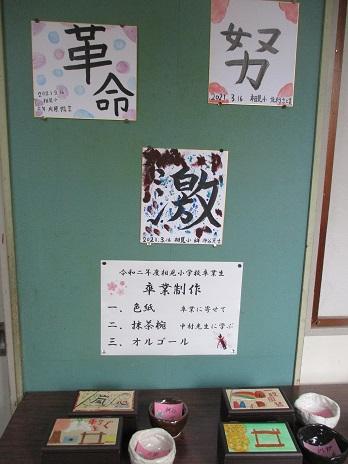 革命
2021.3.16
相見小
努
2021.3.16 相見小
激
2021.3.16 相見小
令和二年度相見小学校卒業生
卒業制作
一、色紙 卒業に寄せて
二、抹茶碗 中村先生に学ぶ
三、オルゴール
嵐